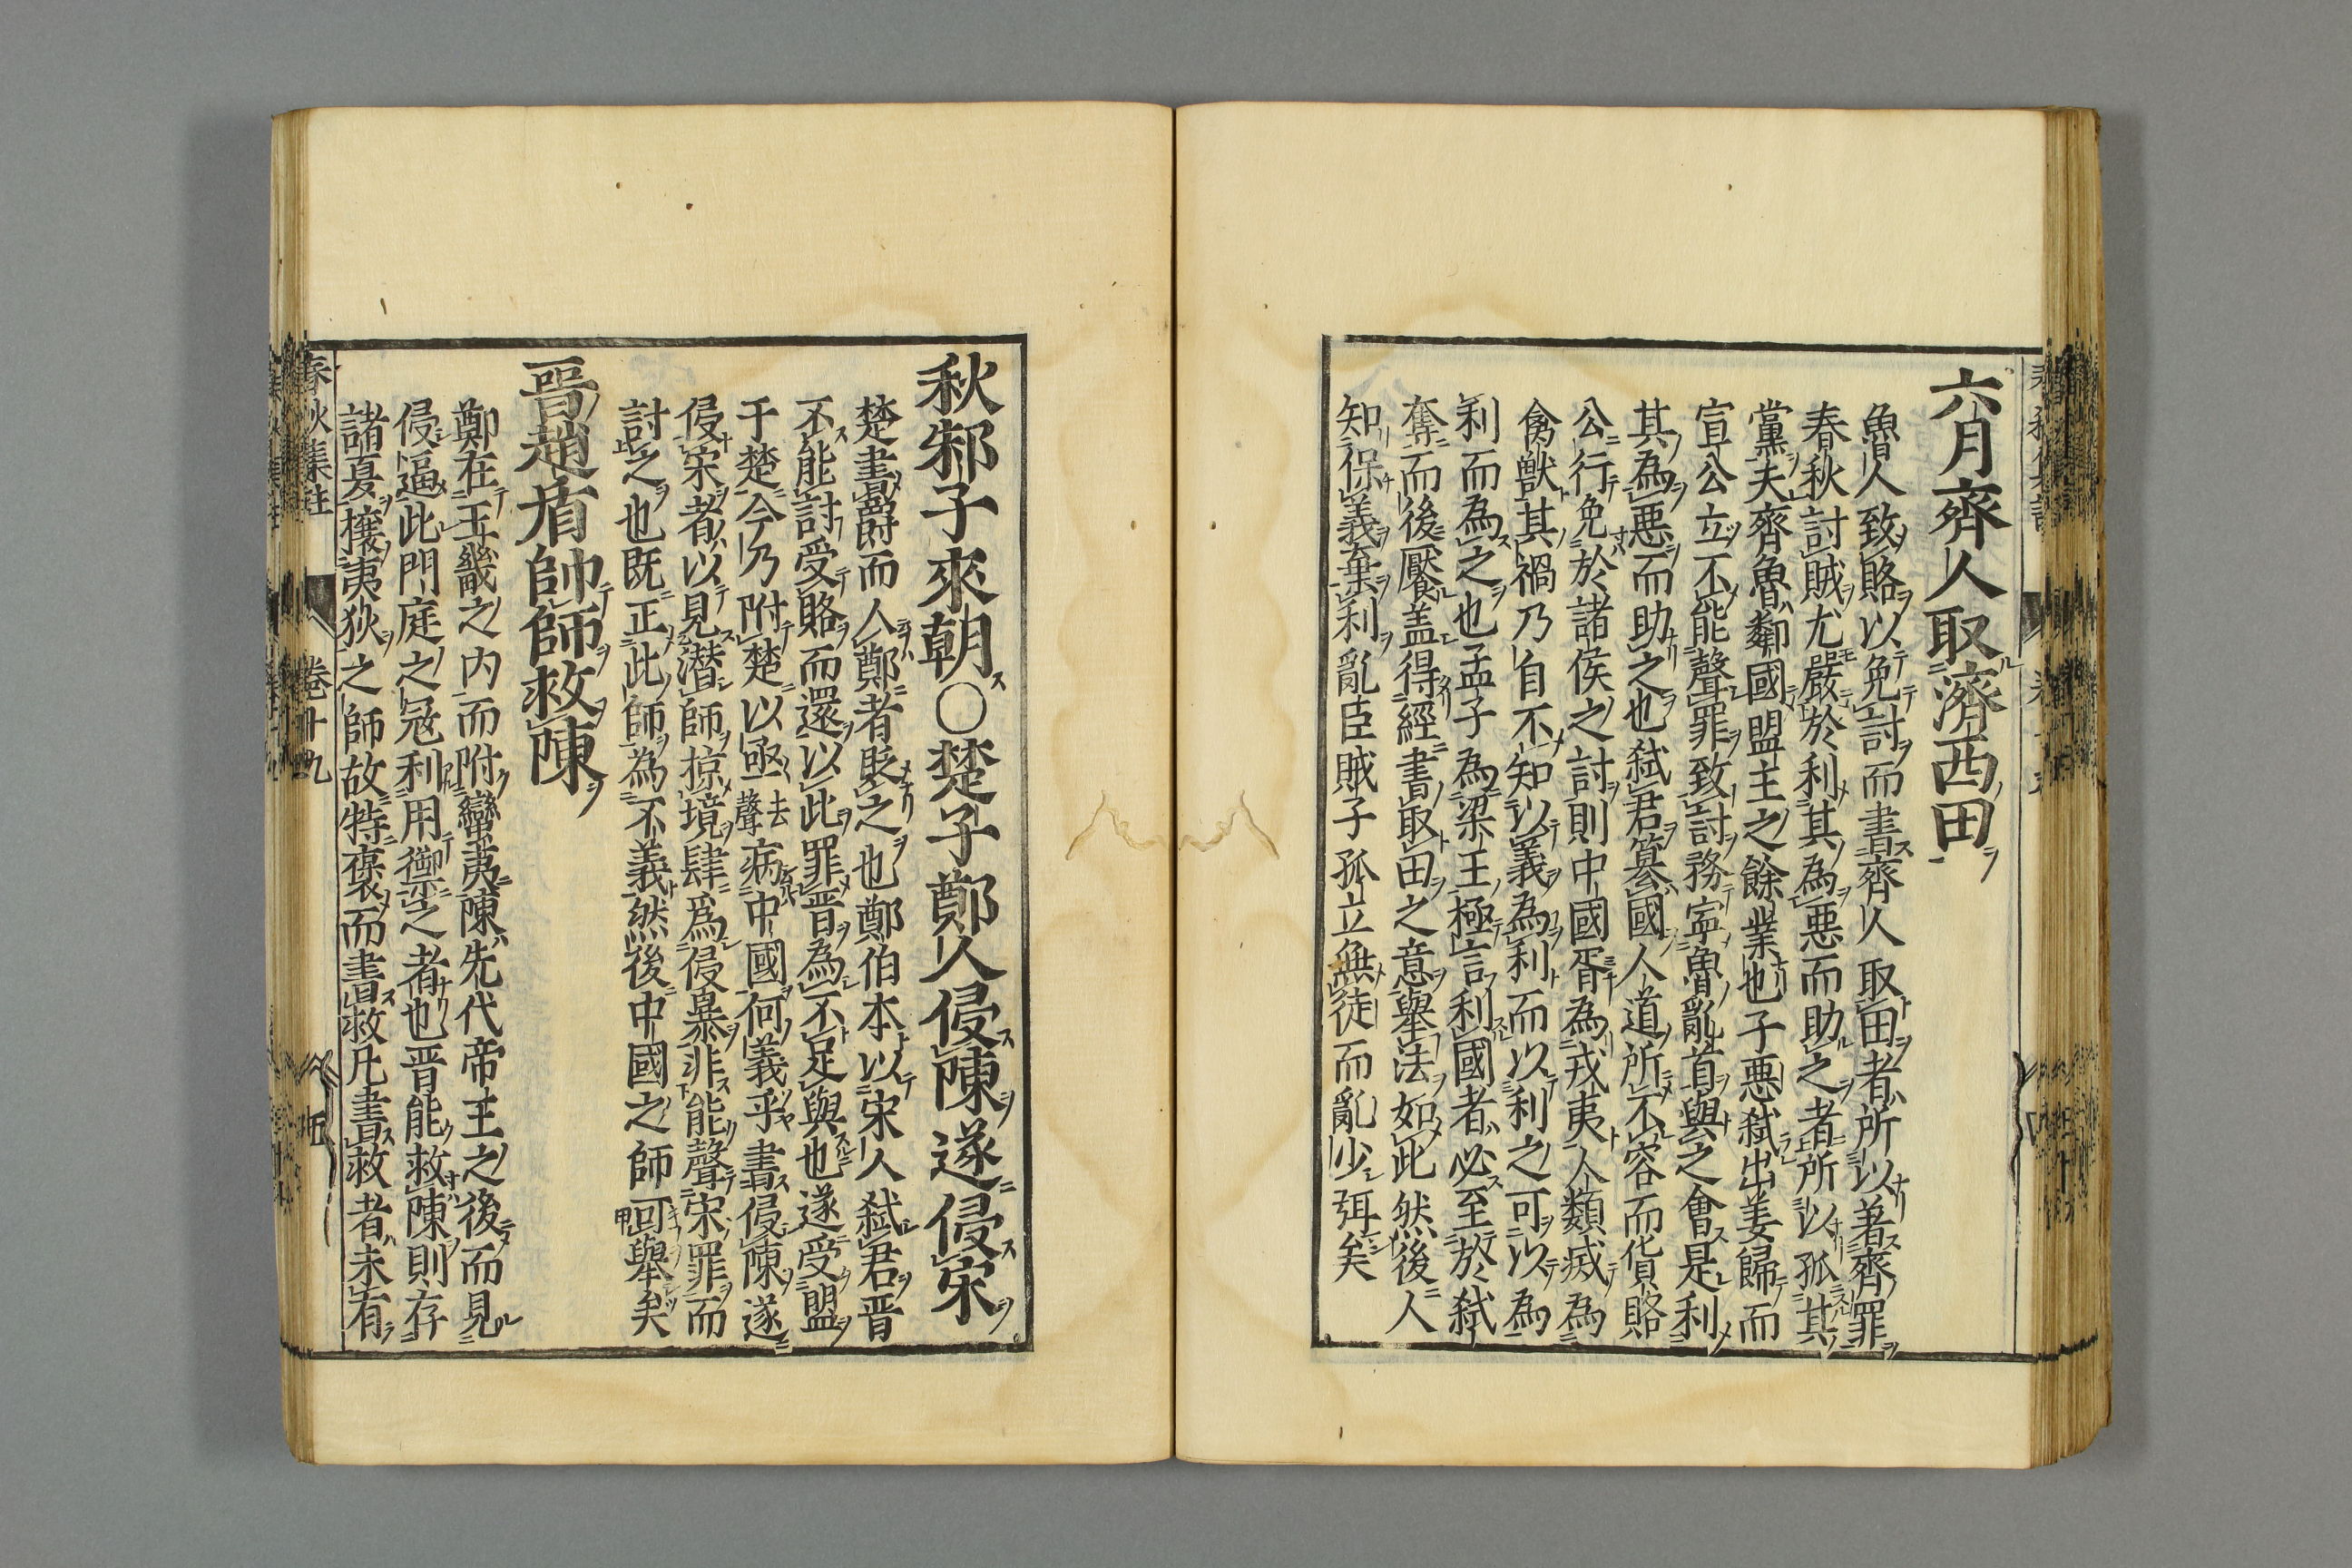 六月齊人取濟西田
魯人致賂以免討而書齊人取田者所以著齊罪
春秋討賊尤嚴於利其為惡而助之者所以孤其
黨夫齊魯鄰國盟主之餘業也子惡弑出姜歸而
宣公立不能聲罪致討務寧魯亂首與之會是利
其為惡而助之也弑君簒國人道所不容而貨賂
公行免於諸侯之討則中國胥為戎夷人類滅為
禽獸其禍乃自不知以義為利而以利之可以為
利而為之也孟子為梁王極言利國者必至於弑
奪而後饜盖得經書取田之意舉法如此然後人
知保義棄利亂臣賊子孤立無徒而亂少弭矣
秋邾子來朝○楚子鄭人侵陳遂侵宋
楚書爵而人鄭者貶之也鄭伯本以宋人弑君晋
不能討受賂而還以此罪晋為不足與也遂受盟
于楚今乃附楚以亟去聲病中國何義乎書侵陳遂
侵宋者以見潜師掠境肆爲侵暴非能聲宋罪而
討之也既正此師為不義然後中國之師可舉矣
晉趙盾帥師救陳
鄭在王畿之内而附蠻夷陳先代帝王之後而見
侵逼此門庭之冦利用禦之者也晋能救陳則存
諸夏攘夷狄之師故特褒而書救凡書救者未有
春秋集註 卷十九 五